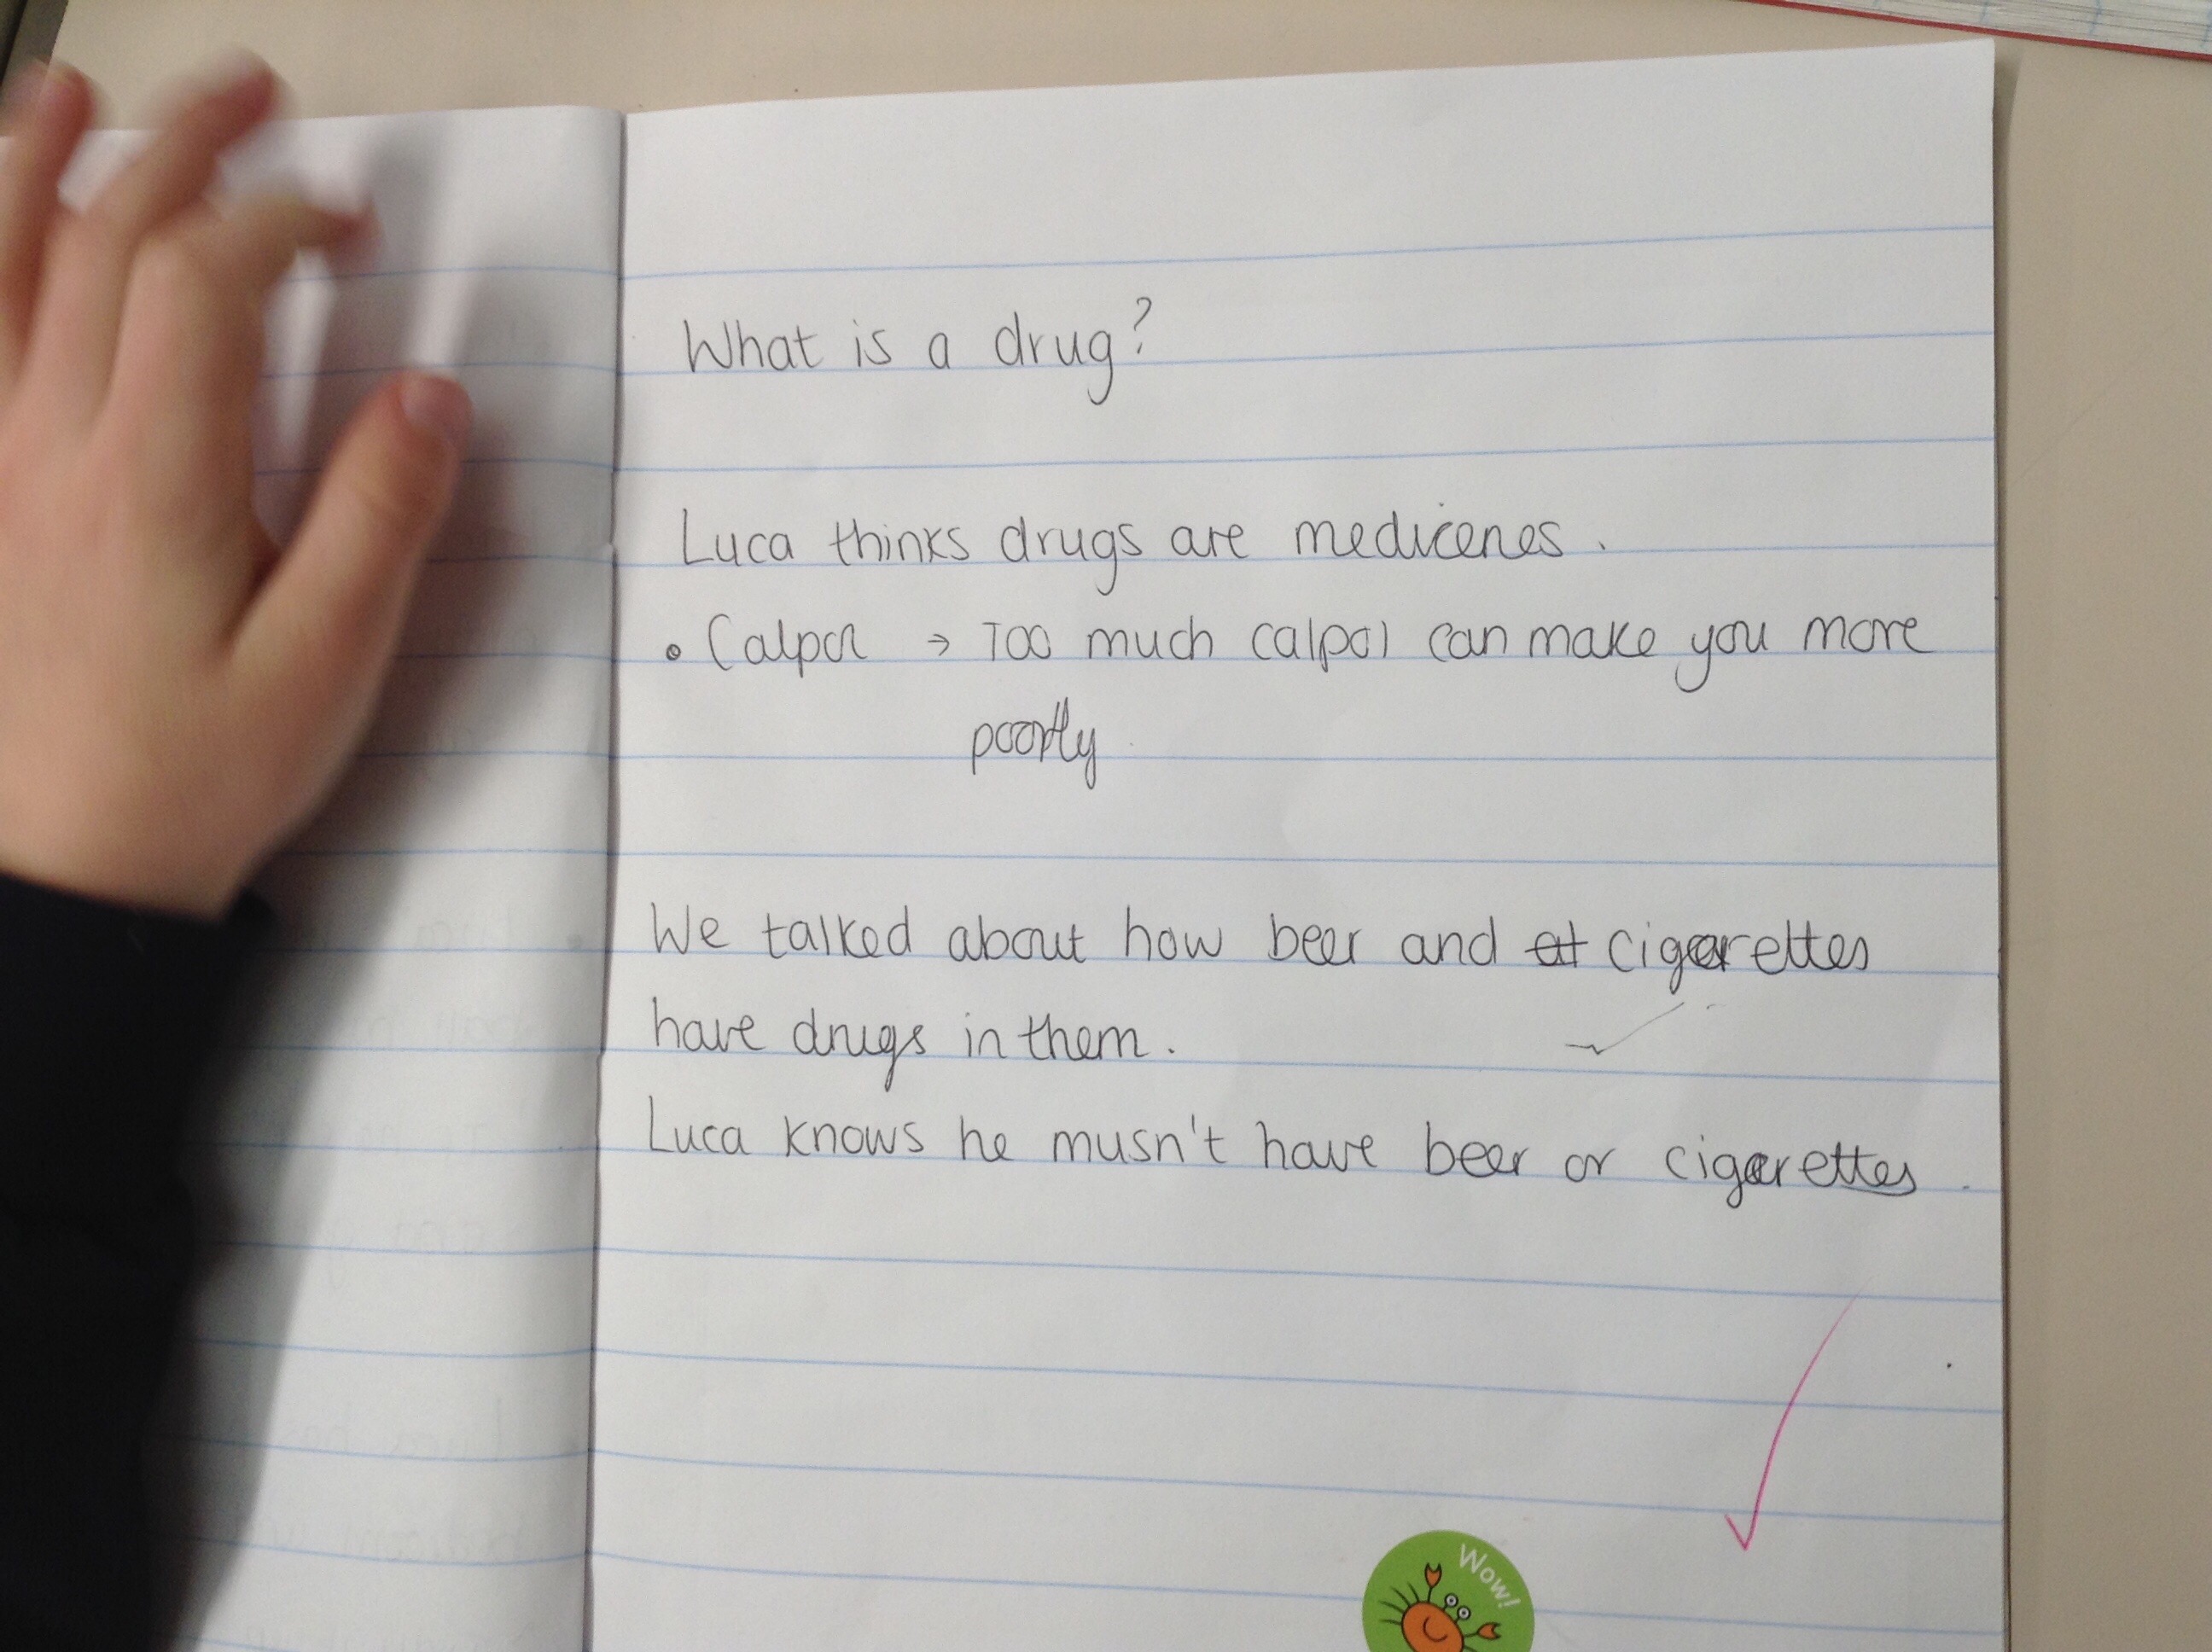 What is a drug?
Luca thinks drugs are medicenes.
• Calpol → Too much calpol can make you more
poorly
We talked about how beer and cigarettes
have drugs in them.
Luca knows he musn't have beer or cigarettes.
Wow!